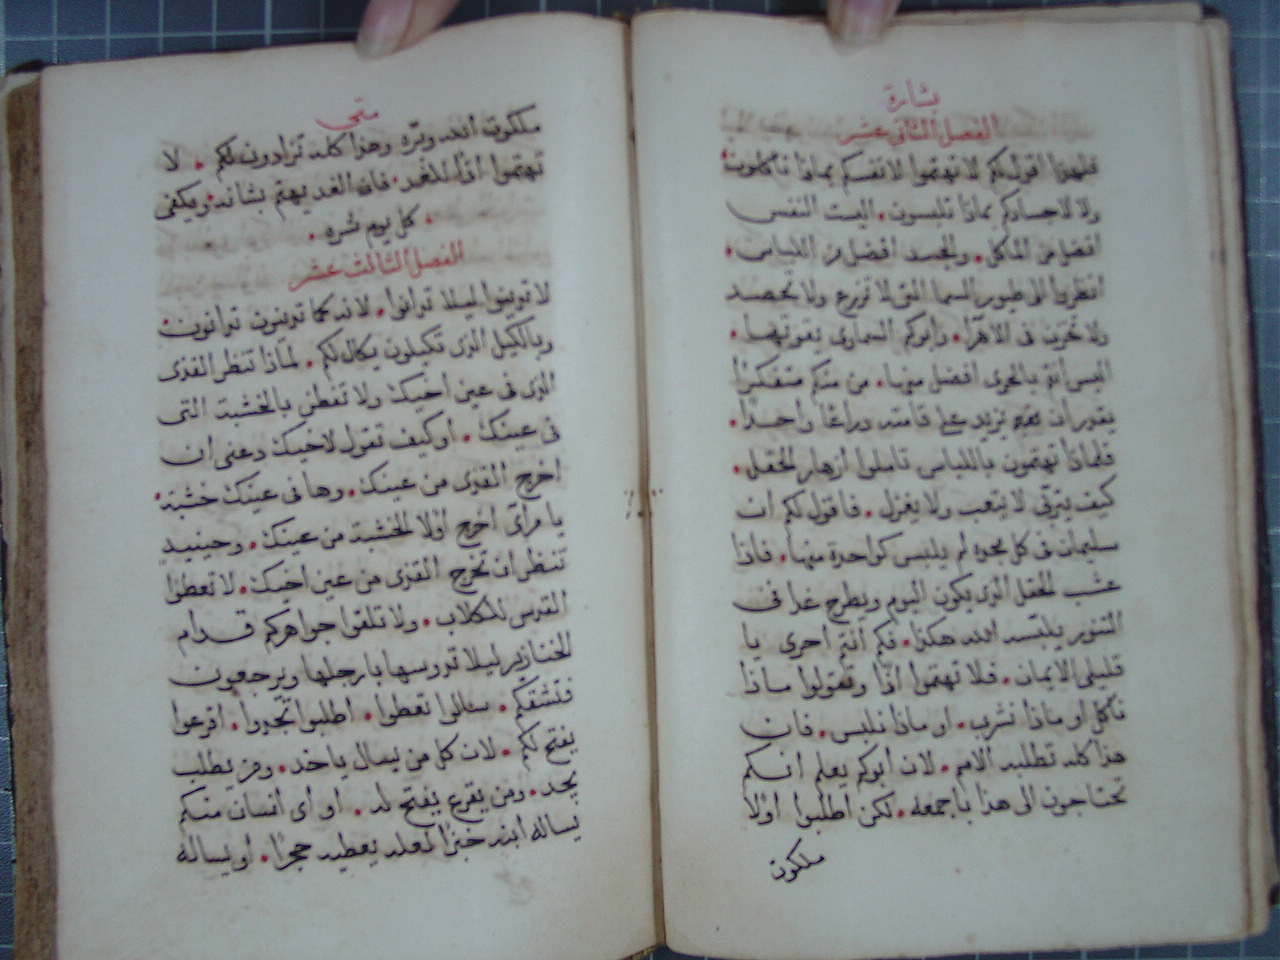 بشارة
الفصل الثاني عشر
فلهذا اقول لكم لا تهتموا لانفسكم بماذا تاكلون
ولا لاجسادكم بماذا تلبسون. اليست النفس
افضل من الماكل. والجسد افضل من اللباس.
انظروا الى طيور السما التي لا تزرع ولا تحصد
ولا تخزن في الاهرآ. وابوكم السماوى يقوتها.
اليس انتم بالحرى افضل منها. من منكم متفكرًا
يقدر ان يزيد على قامته دراعًا واحدًا.
فلماذا تهتمون باللباس تاملوا ازهار الحقل.
كيف يتربى لا يتعب ولا يغزل. فاقول لكم ان
سليمان في كل مجده لم يلبس كواحدة منها. فاذا
عشب الحقل الذى يكون اليوم ويطرح غدا في
التنور يلبسه الله هكذا. فكم انتم احرى يا
قليلى الايمان. فلا تهتموا اذًا وتقولوا ماذا
ناكل او ماذا نشرب. او ماذا نلبس. فان
هذا كله تطلبه الامم. لان ابوكم يعلم انكم
تحتاجون الى هذا باجمعه. لكن اطلبوا اولا
ملكوت
متى
ملكوت الله وبره وهذا كله تزادون لكم. لا
تهتموا اذًا للغد. فان الغد يهتم بشانه. ويكفى
كل يوم شره.
الفصل الثالث عشر
لا تدينوا ليلا تدانوا. لانه كما تدينون تدانون.
وبالكيل الذى تكيلون يكال لكم. لماذا تنظر القذى
الذى في عين اخيك ولا تفطن بالخشبة التى
في عينك. او كيف تقول لاخيك دعنى ان
اخرج القذى من عينك. وها في عينك خشبة.
يا مرآى اخرج اولا الخشبة من عينك. وحينيد
تنظر ان تخرج القذى من عين اخيك. لا تعطوا
القدس للكلاب. ولا تلقوا جواهركم قدام
الخنازير ليلا تدوسها بارجلها ويرجعون
فتشقكم. سالوا تعطوا. اطلبوا تجدوا. اقرعوا
يفتح لكم. لان كل من يسال ياخد. ومن يطلب
يجد. ومن يقرع يفتح له. او اى انسان منكم
يساله ابنه خبزا لعله يعطيه حجرًا. او يساله